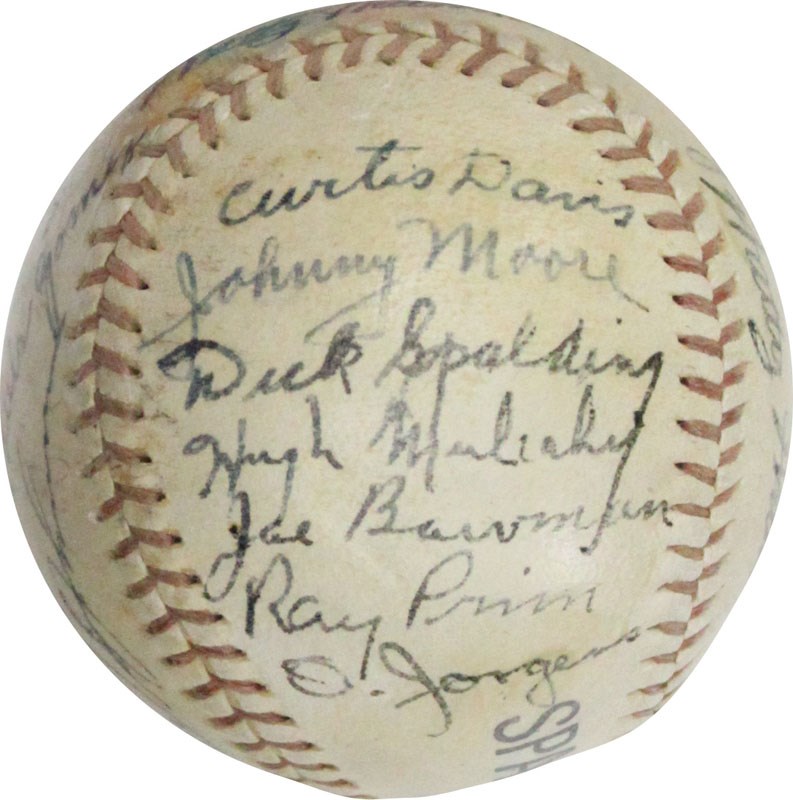 Curtis Davis
Johnny Moore
Dick Spalding
Hugh Mulcahy
Joe Bowman
Ray Prim
O. Jorgens
SPA